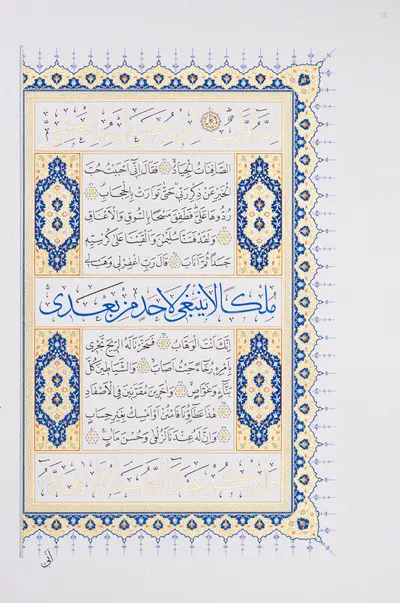 الصَّافِنَاتُ الْجِيَادُ فَقَالَ إِنِّي أَحْبَبْتُ حُبَّ
الْخَيْرِ عَنْ ذِكْرِ رَبِّي حَتَّى تَوَارَتْ بِالْحِجَابِ
رُدُّوهَا عَلَيَّ فَطَفِقَ مَسْحًا بِالسُّوقِ وَالْأَعْنَاقِ
وَلَقَدْ فَتَنَّا سُلَيْمٰنَ وَأَلْقَيْنَا عَلٰى كُرْسِيِّهِ
جَسَدًا ثُمَّ أَنَابَ قَالَ رَبِّ اغْفِرْ لِي وَهَبْ لِي
مُلْكًا لَا يَنْبَغِي لِأَحَدٍ مِنْ بَعْدِي
إِنَّكَ أَنْتَ الْوَهَّابُ فَسَخَّرْنَا لَهُ الرِّيحَ تَجْرِي
بِأَمْرِهِ رُخَاءً حَيْثُ أَصَابَ وَالشَّيَاطِينَ كُلَّ
بَنَّاءٍ وَغَوَّاصٍ وَآخَرِينَ مُقَرَّنِينَ فِي الْأَصْفَادِ
هٰذَا عَطَاؤُنَا فَامْنُنْ أَوْ أَمْسِكْ بِغَيْرِ حِسَابٍ
وَإِنَّ لَهُ عِنْدَنَا لَزُلْفٰى وَحُسْنَ مَآبٍ
أَنِّي